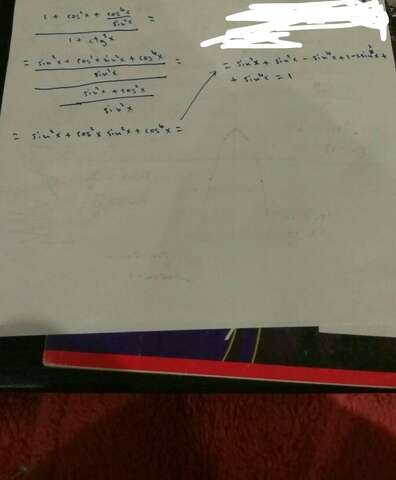 1 + cos²x + cos⁴x/sin²x =
1 + ctg²x
= sin²x + cos²x sin²x + cos⁴x =
sin²x
sin²x + cos²x
sin²x
= sin²x + cos²x sin²x + cos⁴x =
= sin²x + sin²x - sin⁴x + 1 - 2sin²x +
+ sin⁴x = 1